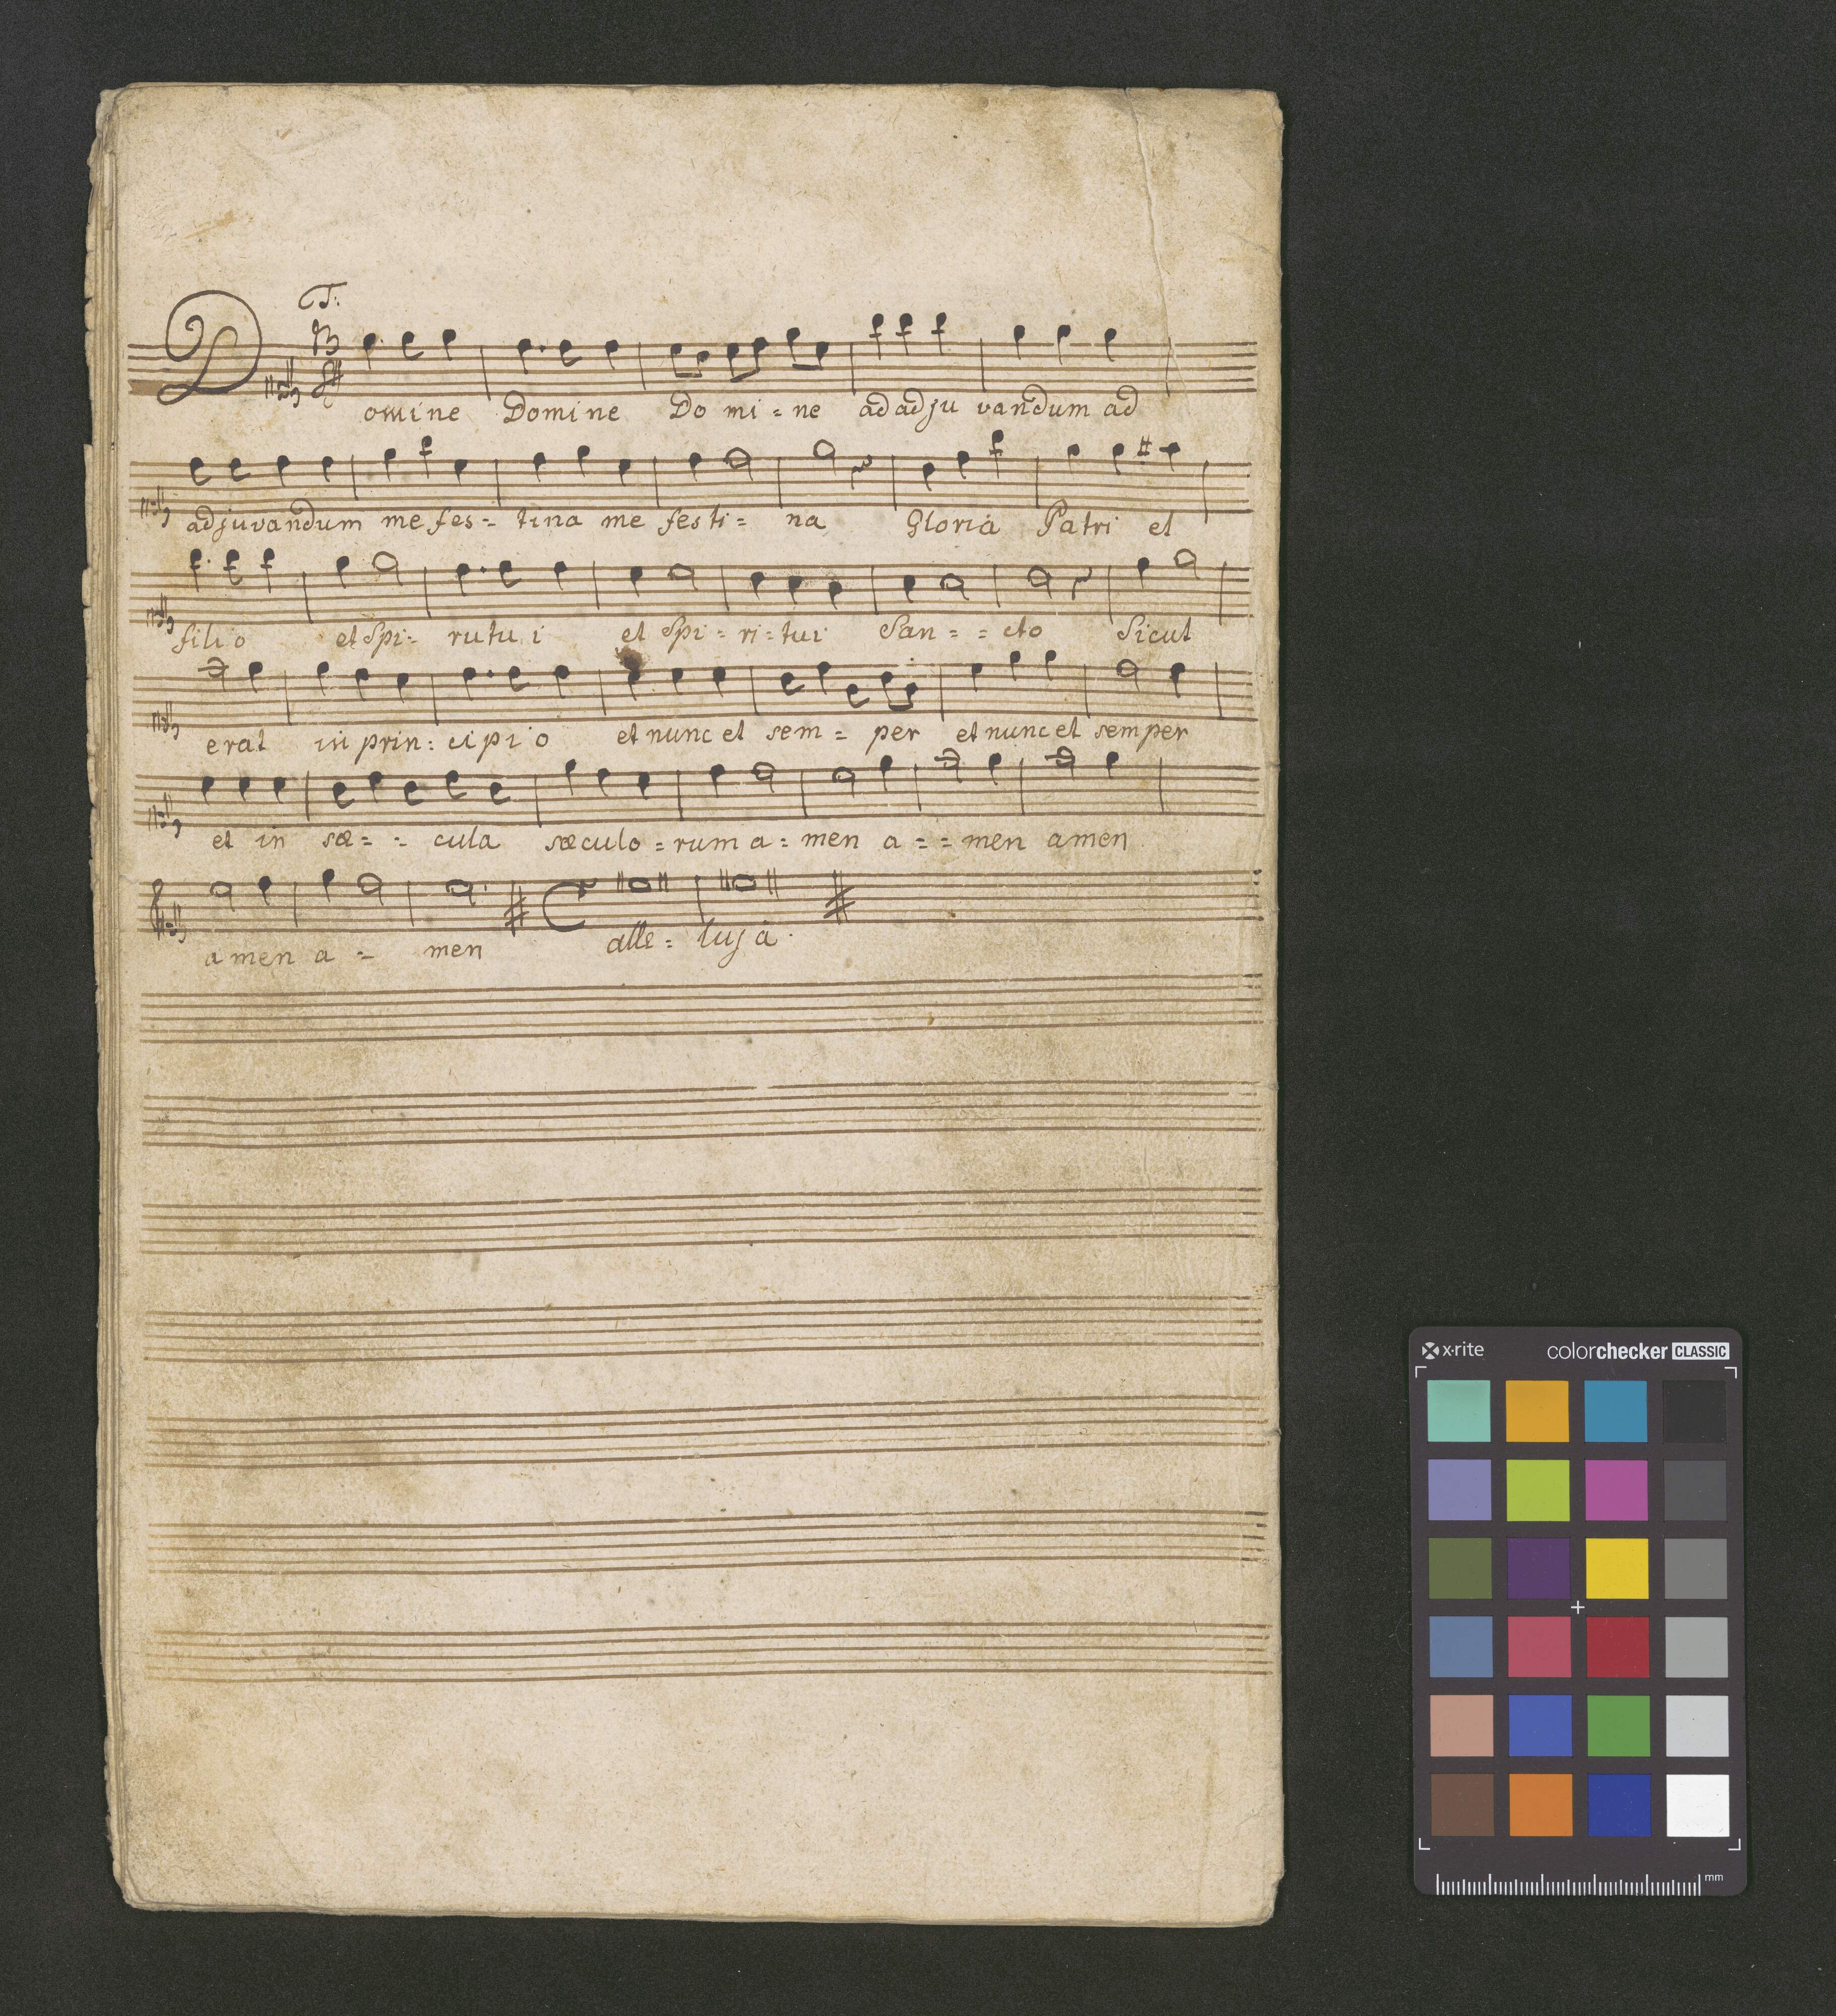 T:
Domine Domine Do mi = ne ad adju vandum ad
adjuvandum me fes = tina me festi = na Gloria Patri et
filio et Spi = rutui et Spi = ri = tui San = = cto Sicut
erat in prin = cipio et nunc et sem = per et nunc et semper
et in sæ = = cula sæculo = rum a = men a = = men amen
amen a = men alle = luja.
x·rite colorchecker CLASSIC
mm